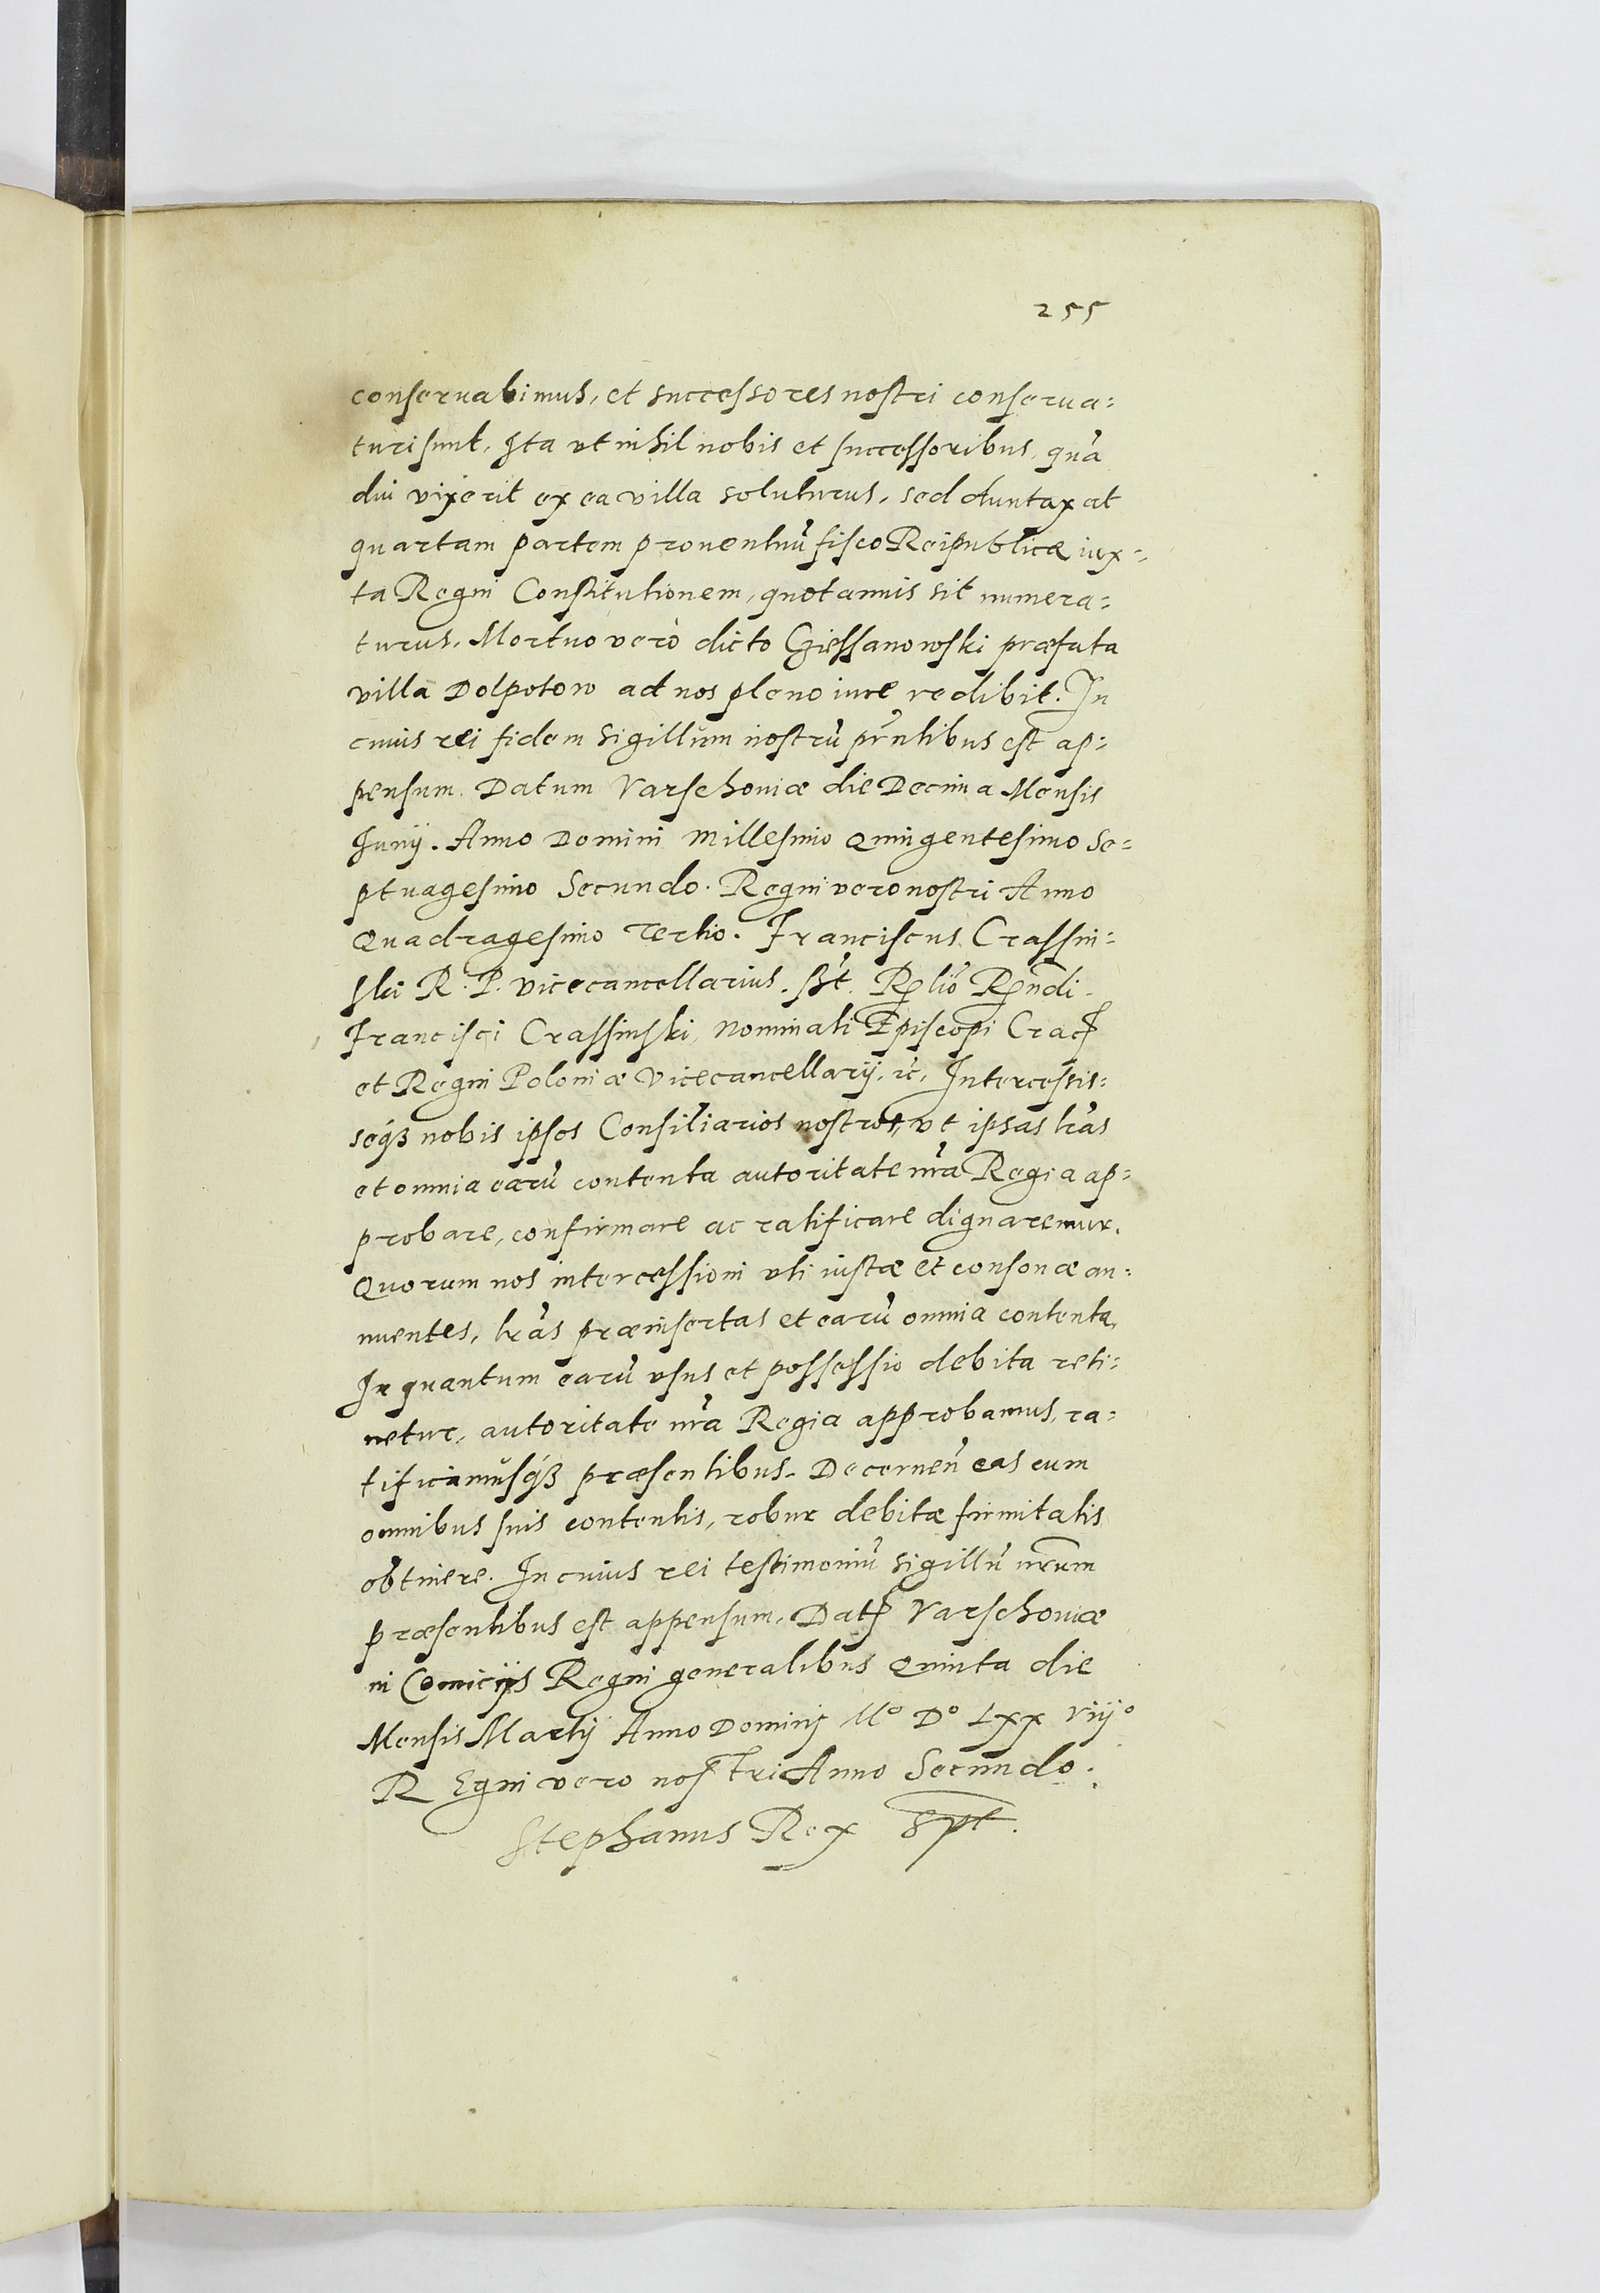 255
conseruabimus, et successores nostri conserua=
turi sunt, Ita vt nihil nobis et successoribus, quā
diu vixerit ex ea villa soluturus, sed duntaxat
quartam partem prouentuū fisco Reipublicæ iux=
ta Regni Constitutionem, quotannis sit numera=
turus. Mortuo verò dicto Czieſsanowski præfata
villa Dolpotow ad nos pleno iure redibit. In
cuius rei fidem sigillum nostrū pn̄tibus est ap=
pensum. Datum Varschoviæ die Decima Mensis
Junij. Anno Domini Millesimo Quingentesimo Se=
ptuagesimo Secundo. Regni vero nostri Anno
Quadragesimo Tertio. Franciscus Crassin=
ski R. P. vicecancellarius. sst. Rlō Rn̄di
Francisci Crassinski, Nominati Episcopi Crac
et Regni Poloniæ Vicecancellarij, etc, Intercessis=
seq3 nobis ipsos Consiliarios nostros, vt ipsas lrās
et omnia earū contenta autoritate nrā Regia ap=
probare, confirmare ac ratificare dignaremur.
Quorum nos intercessioni vti iustæ et consonæ an=
nuentes, lrās præinsertas et earū omnia contenta,
In quantum earū vsus et possessio debita reti=
netur, autoritate nrā Regia approbamus, ra=
tificamusq3 præsentibus. Decernen̄ eas cum
omnibus suis contentis, robur debitæ firmitatis
obtinere. In cuius rei testimoniū sigillū nr̄um
præsentibus est appensum. Dat Varschoviæ
in Comicijs Regni generalibus Quinta die
Mensis Martij Anno Dominj Mº Dº Lxx viijº
REgni vero nostri Anno Secundo.
Stephanus Rex sst.